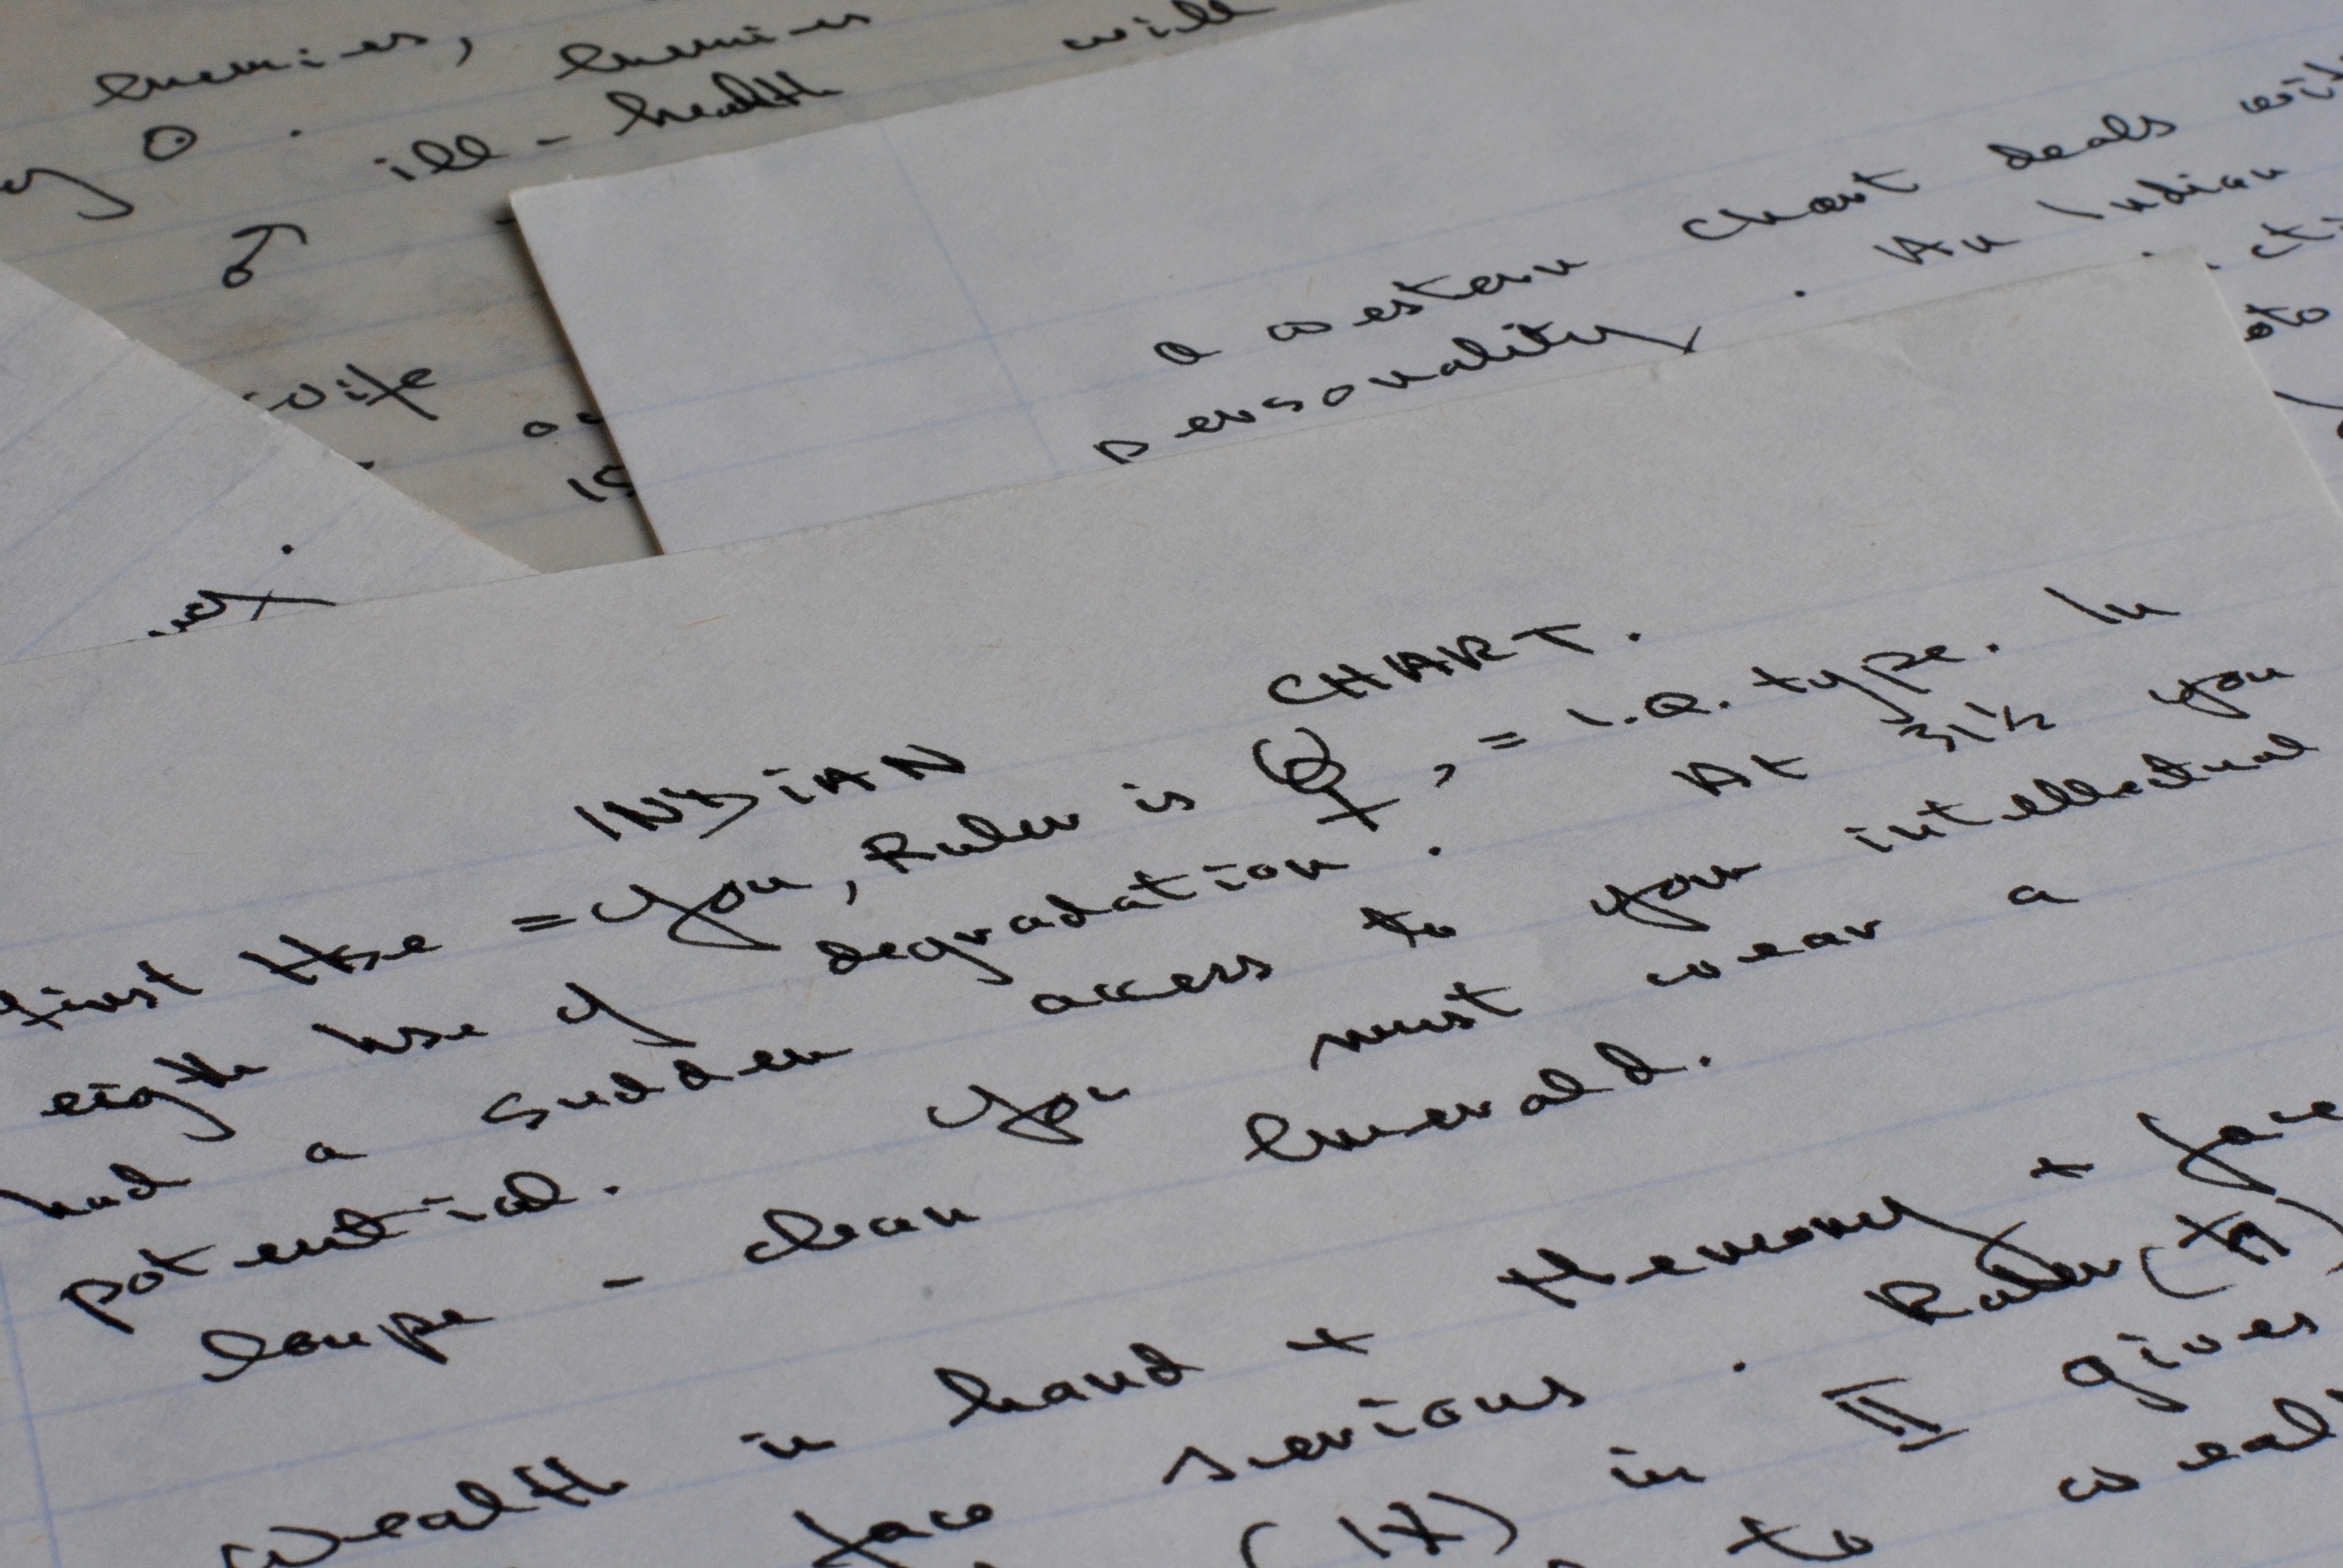 enemies, enemies will
ill - health
♂
wife
a western chart deals with
personality. An Indian
INDIAN CHART.
first Hse = you, Ruler is ☿, = I.Q. type. In
eighth hse of degradation. At 31½ you
had a sudden access to your intellectual
potential. you must wear a
loupe - clean Emerald.
Wealth in hand + Memory + face
face serious. Ruler (
in II gives
to